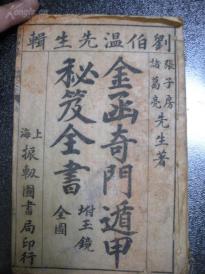 劉伯温先生輯
張子房
諸葛亮
先生著
金函奇門遁甲
秘笈全書
坿玉鏡
全圖
上海
振圖書局印行